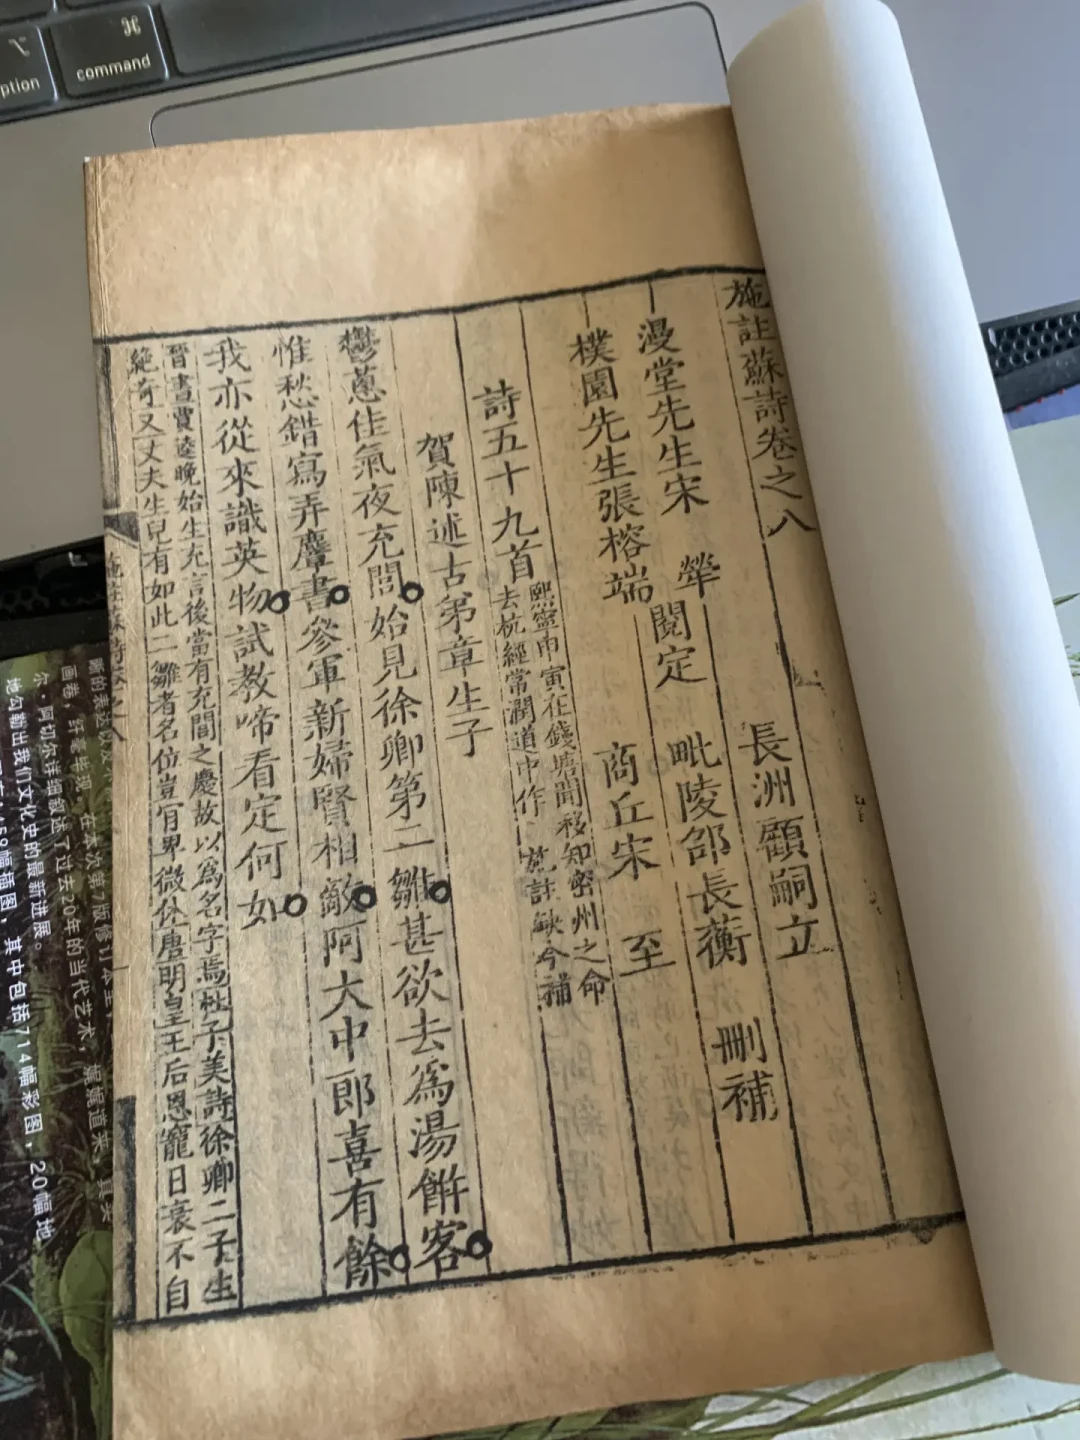 施註蘇詩卷之八
漫堂先生宋犖閱定
樸園先生張榕端
長洲顧嗣立
毗陵邵長蘅刪補
商丘宋至
詩五十九首
熙寧甲寅在錢塘聞移知密州之命
去杭經常潤道中作 施註缺今補
賀陳述古弟章生子
鬱蔥佳氣夜充閭始見徐卿第二雛甚欲去為湯餅客
惟愁錯寫弄麞書參軍新婦賢相敵阿大中郎喜有餘
我亦從來識英物試教啼看定何如
晉書賈逵晚始生充言後當有充閭之慶故以為名字焉杜子美詩徐卿二子生
絶奇又丈夫生兒有如此二雛者名位豈肯卑微休唐明皇王后恩寵日衰不自
option
⌥
command
⌘